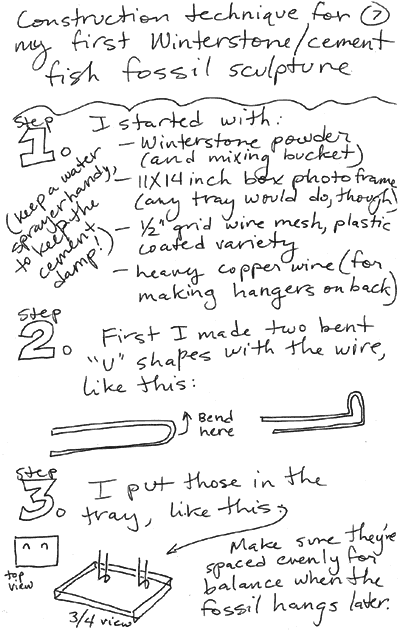 Construction technique for 7
my first Winterstone/cement
fish fossil sculpture
Step
1.
I started with:
- Winterstone powder
(and mixing bucket)
- 11X14 inch box photo frame
(any tray would do, though)
- ½" grid wire mesh, plastic
coated variety
- heavy copper wire (for
making hangers on back)
(keep a water
sprayer handy,
to keep the
cement
damp!)
Step
2.
First I made two bent
"U" shapes with the wire,
like this:
Bend
here
Step
3.
I put those in the
tray, like this.
top
view
3/4 view
Make sure they're
spaced evenly for
balance when the
fossil hangs later.